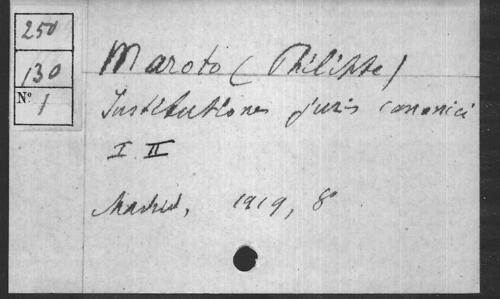 250
130
Nº 1
Maroto (Philippe)
Institutiones juris canonici
I II
Madrid, 1919, 8º